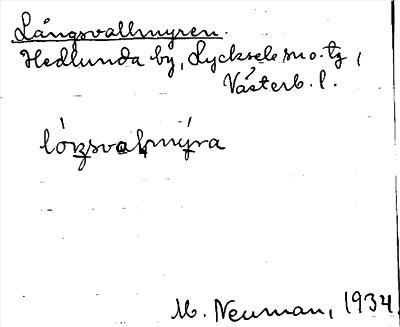 Långsvallmyren.
Hedlunda by, Lycksele sn o. tg,
Västerb. l.
M. Neuman, 1934